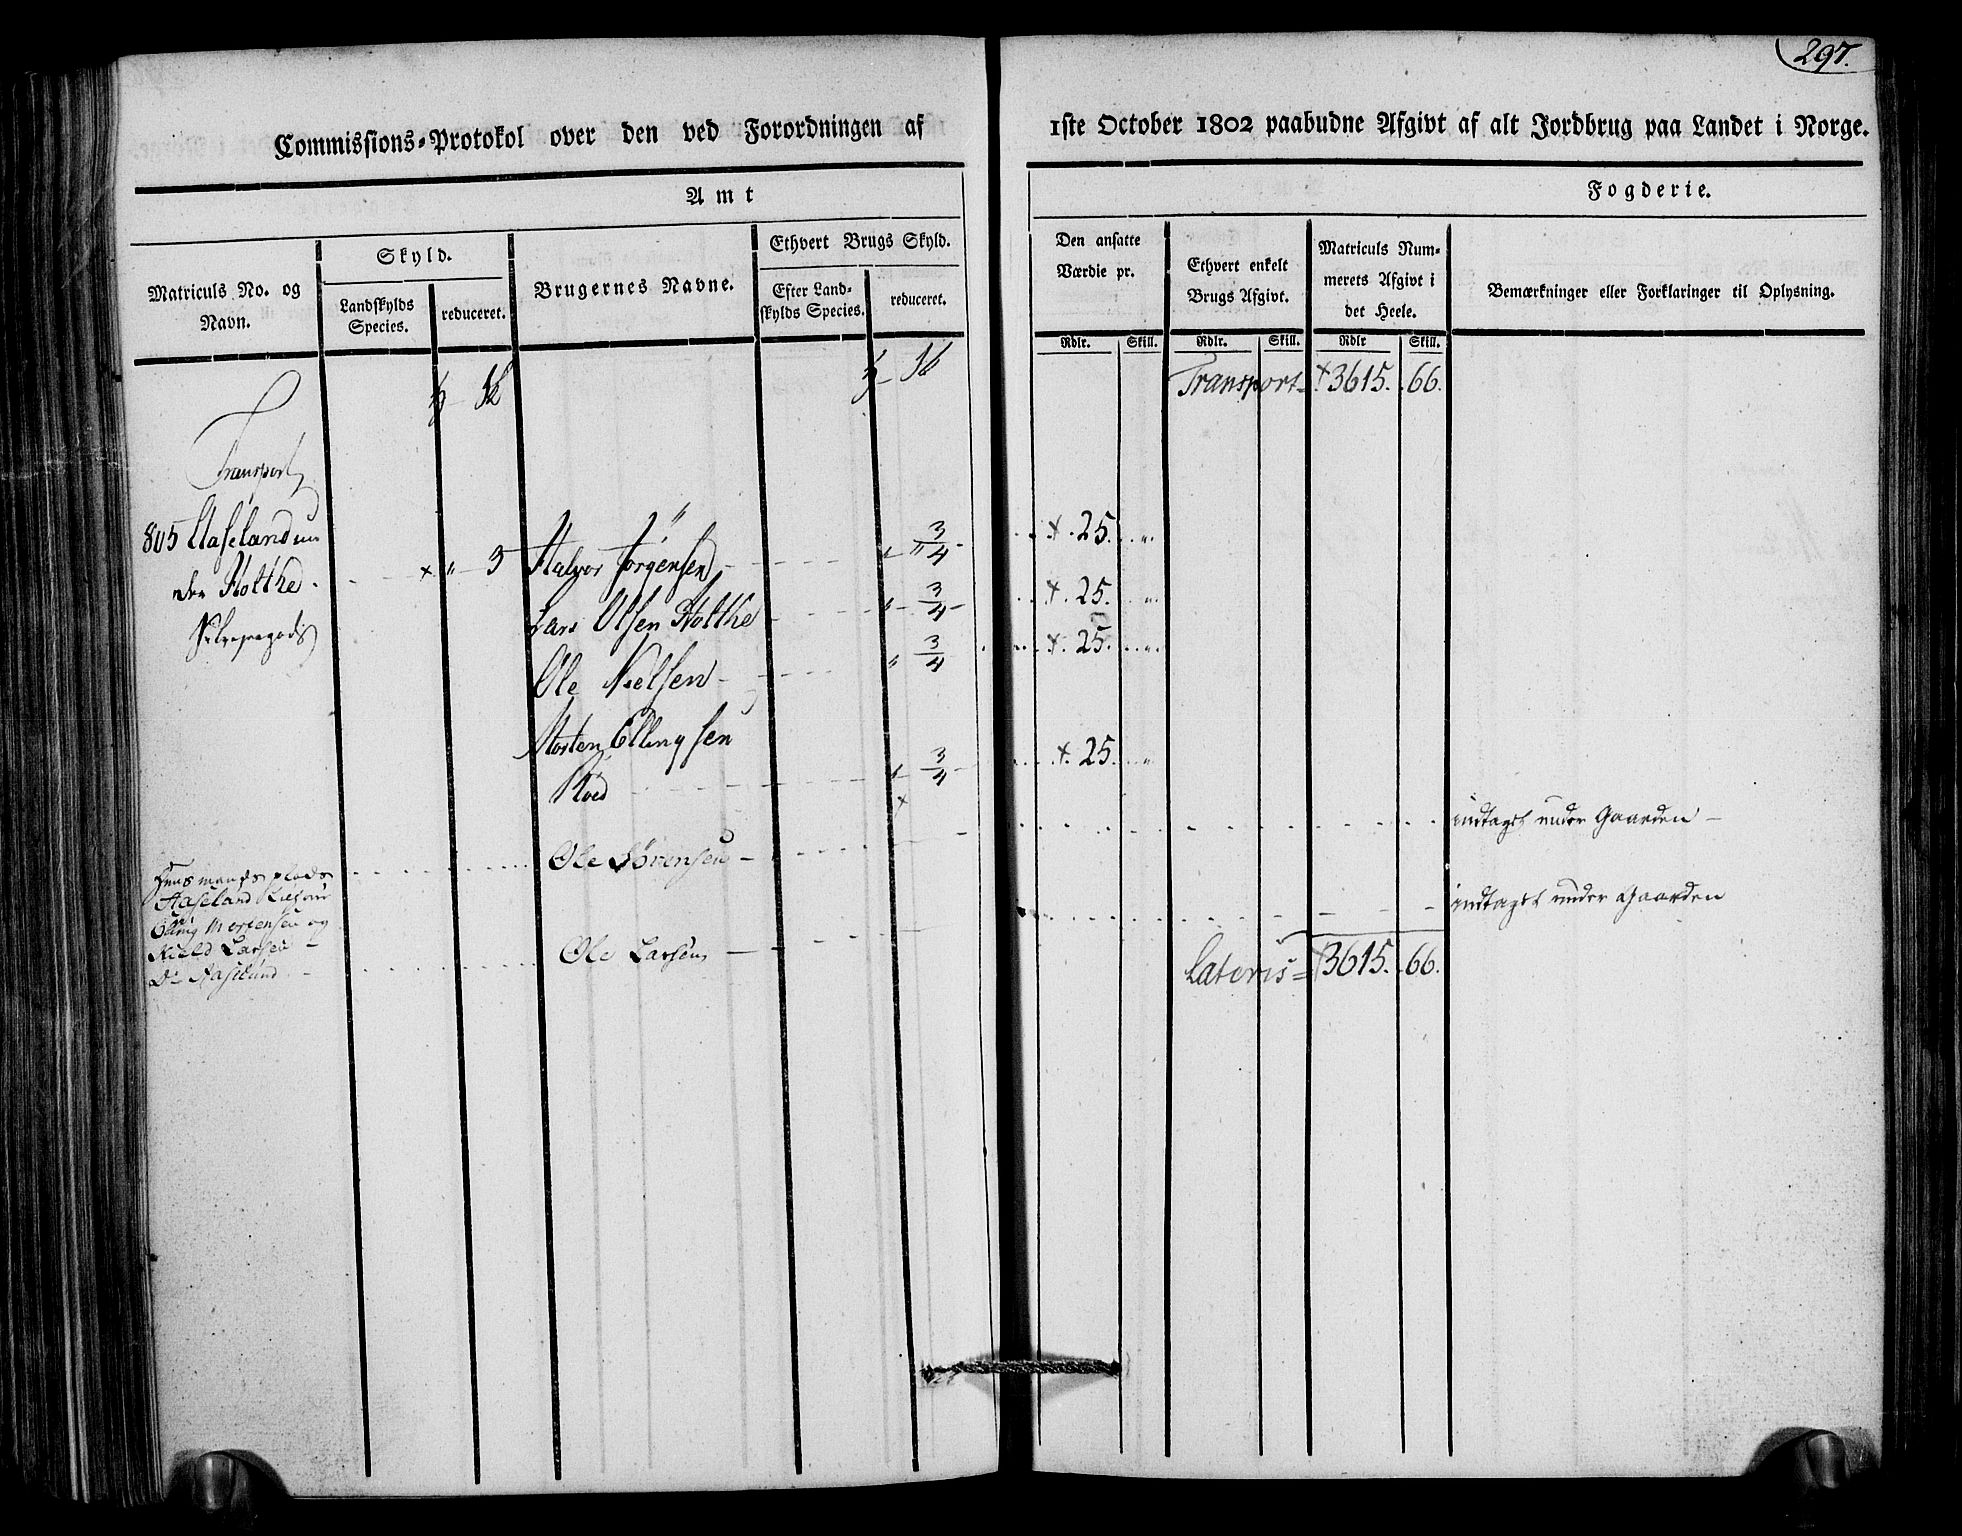 297.
Commissions-Protokol over den ved Forordningen af
1ste October 1802 paabudne Afgivt af alt Jordbrug paa Landet i Norge.
Amt
Fogderie.
Matriculs No. og
Navn.
Skyld.
Landskylds
Species.
reduceret.
Brugernes Navne.
Ethvert Brugs Skyld.
Efter Land-
skylds Species.
reduceret.
Den ansatte
Værdie pr.
Rdlr. Skill.
Ethvert enkelt
Brugs Afgivt.
Rdlr. Skill.
Matriculs Num-
merets Afgivt i
det Heele.
Rdlr Skill.
Bemærkninger eller Forklaringer til Oplysning.
Transport = 3615. 66.
Transport
805 Aaseland un
der Holthe
Selveyergods
" 3
Halvor Jørgensen " 3/4 25. "
Lars Olsen Holthe " 3/4 25. "
Ole Nielsen " 3/4 25. "
Morten Ellingsen
Røed 3/4 25 "
Huusmands plads
Aaseland
Elling Mortensen og
Niels Larsen
Do Aaselund
Ole Sørensen indtaget under Gaarden
Ole Larsen indtaget under Gaarden
Lateris = 3615. 66.